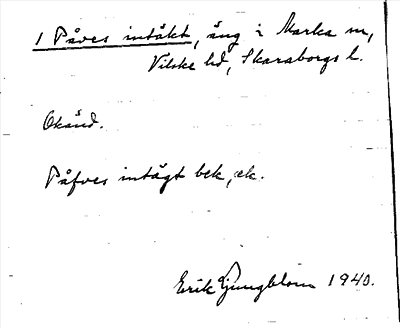 1 Påves intåkt, äng i Marka sn,
Vilske hd, Skaraborgs l.
Okänd.
Påfves intägt bek, ek.
Erik Ljungblom 1940.